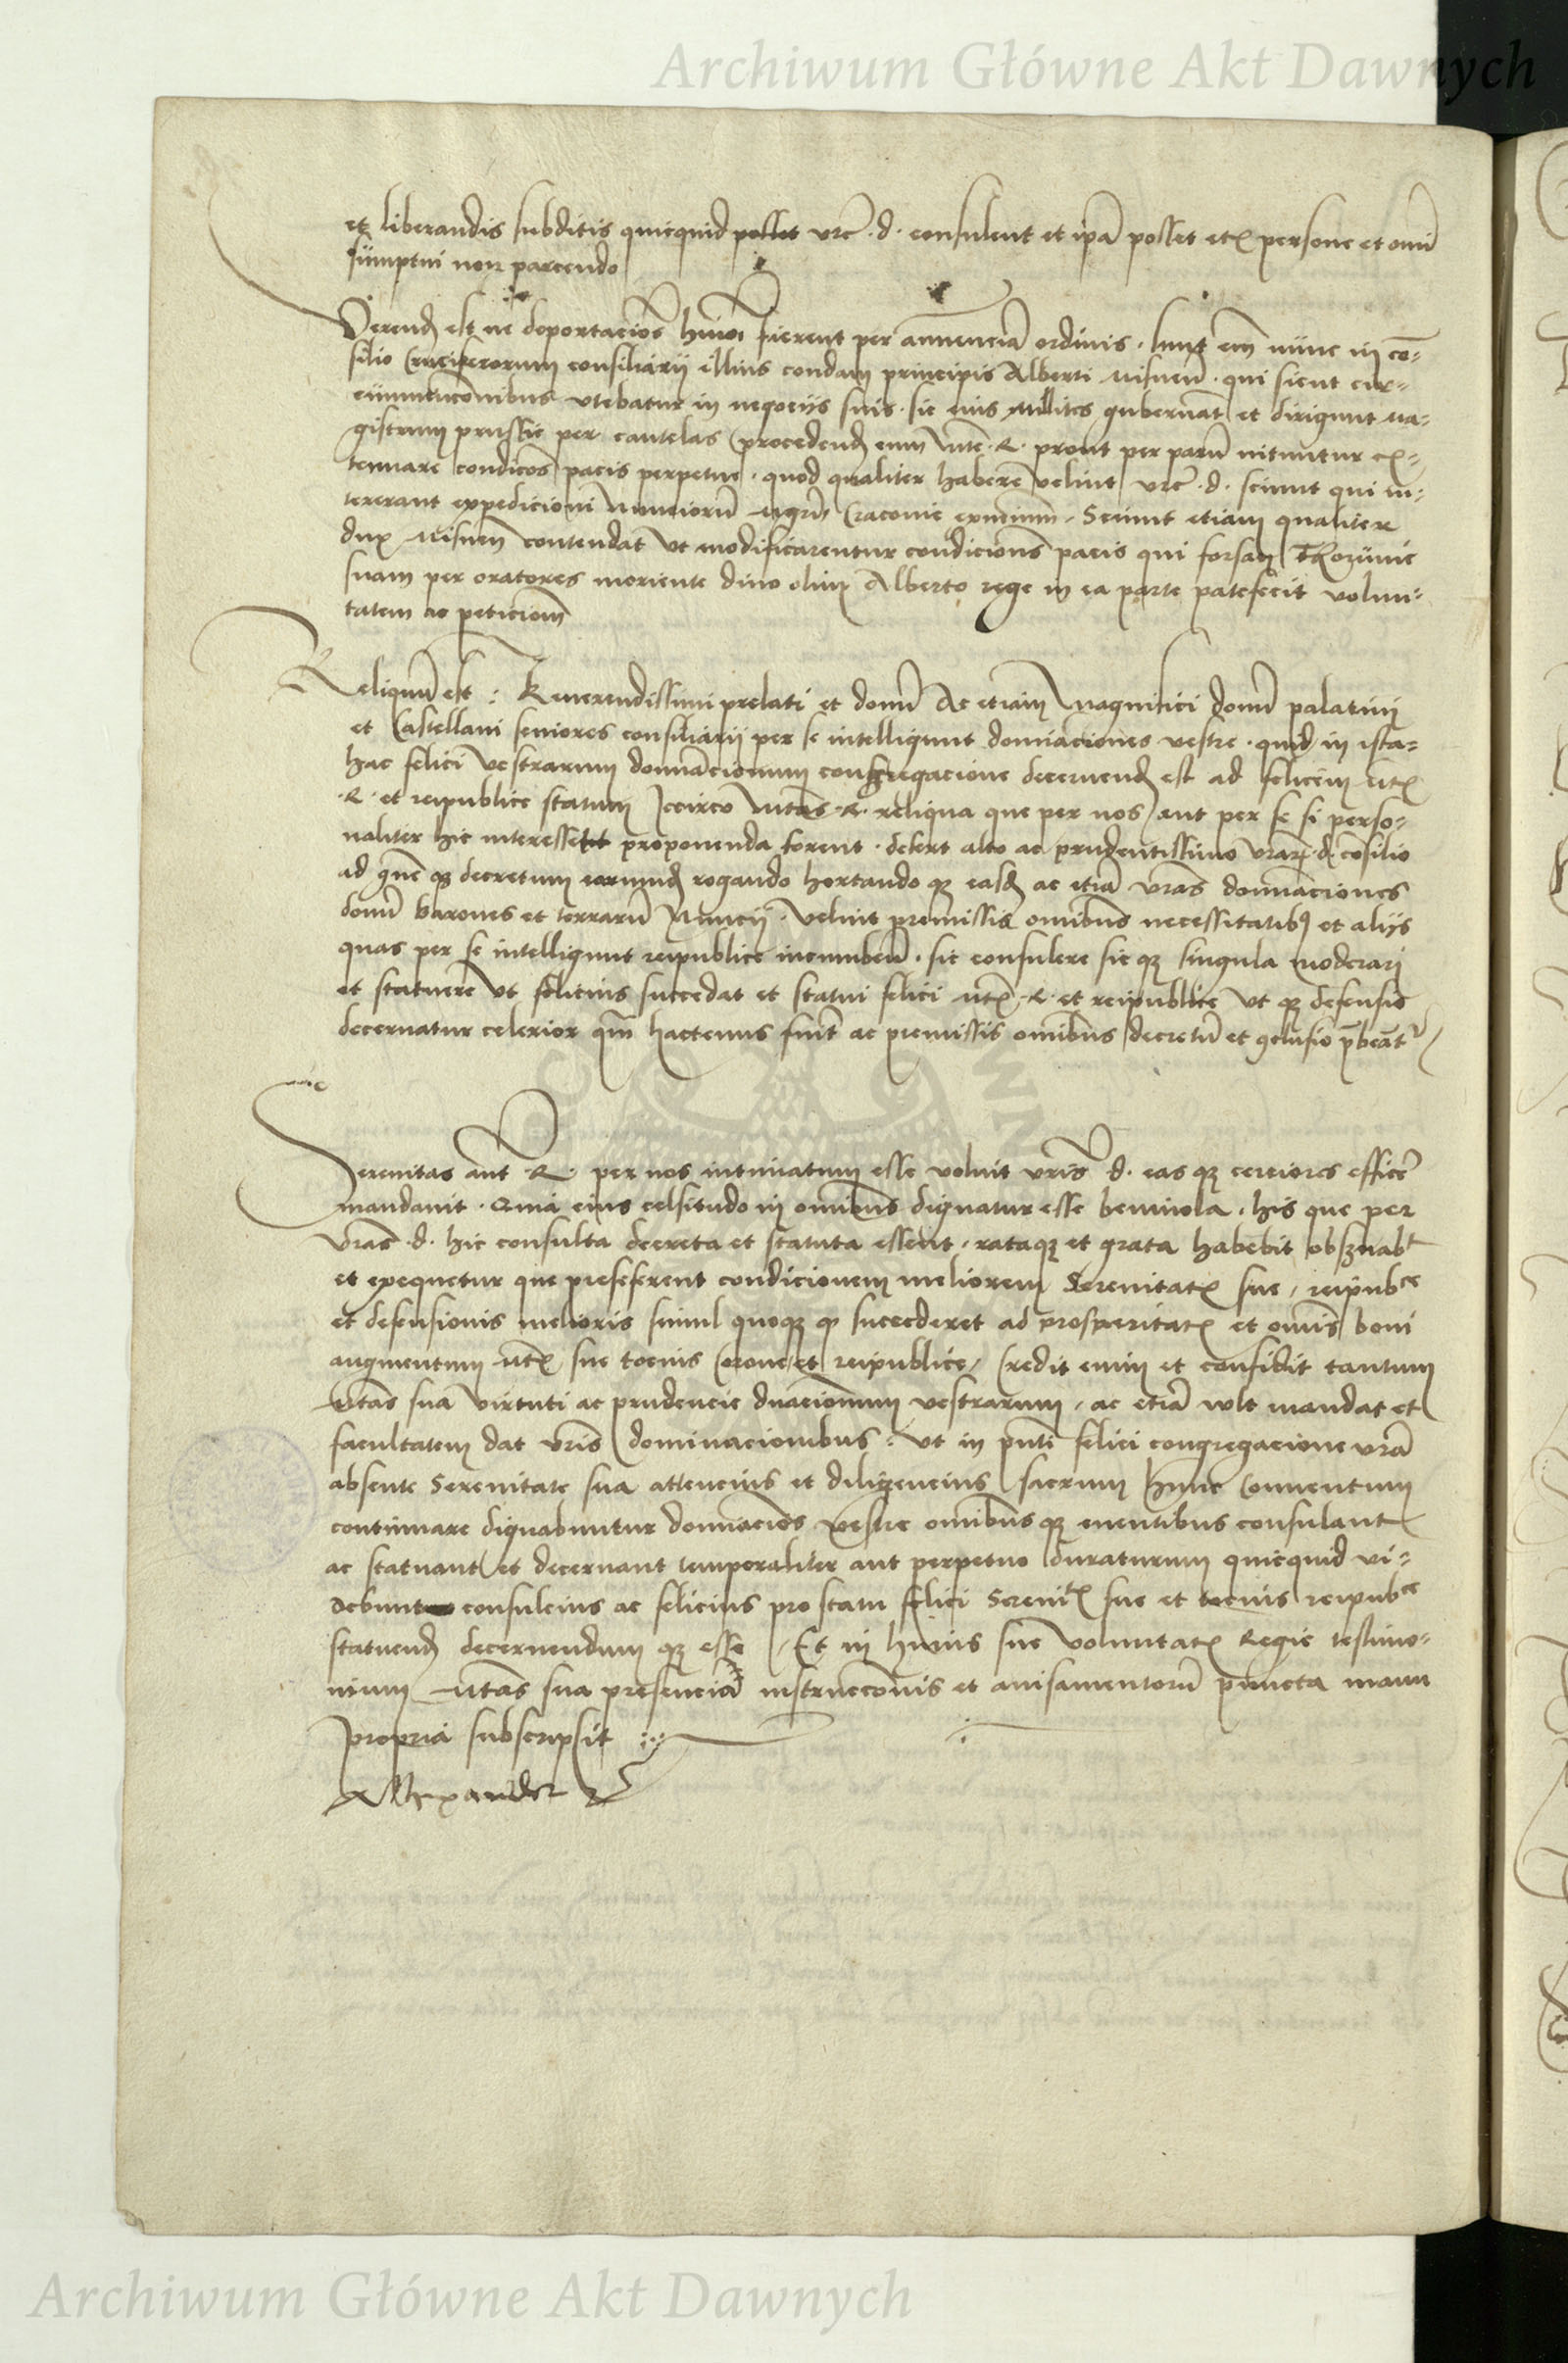 Archiwum Główne Akt Dawnych
et liberandis subditis quicquid vre · d · consulent et ipa posset etz persone et omi
sumptui non parcendo
Verend est ne deportacios huiōi fierent per annenciā ordinis · Sunt em nunc in co-
silio Cruciferorum consiliarii illius condam principis Alberti Misnen · qui sicut cir-
cumvencōnibus utebatur in negociis suis · sic eius milites gubernāt et dirigunt ma-
gistrum prussie per cautelas procedend cum Mte · R · prout per parū nituntur ex-
tenuare condicōs pacis perpetue · quod qualiter habere velint vre · d · sciunt qui in-
tererant expedicioni Nuncciorū Cracovie Sciunt etiam qualiter
dux Misnen contendat ut modificarentur condicions pacis qui forsan Thorunie
suam per oratores moriente divo olim Alberto rege in ea parte patefecit volun-
tatem ac peticiom
Reliquū est : Reverendissimi prelati et domi Ac etiam Magnifici domi palatini
et Castellani seniores consiliarii per se intelligunt domiaciones vestre · quid in ista-
hac felici vestrarum domiacionum congregacione decernend est ad felicem Mtz
· R · et reipublice statum Iccirco Mtas · R · reliqua que per nos aut per se si perso-
naliter hic interesset proponenda forent · defert alto ac prudentissimo vrar · d · cosilio
ad decretum rogando hortando qz easd ac etiā vras domiaciones
domi barones et terrarū Nuncii · velint premissis omibus necessitatibz et aliis
quas per se intelligunt reipublice incumben · sic consulere sic qz singula moderari
et statuere ut felicius succedat et statui felici Mtz · R · et reipublice ut qz defensio
decernatur celerior qm hactenus fuit ac premissis omibus decretū et conclusio p̄beāt
Serenitas aut · R · per nos intimatum esse voluit vris · d · eas qz cerciores efficē
mandavit · Quia eius celsitudo in omibus dignatur esse benivola · his que per
vras · d · hic consulta decreta et statuta essent · rataqz et grata habebit obsservabt
et exequetur que preseferent condicionem meliorem Serenitatz sue · reipubce
et defensionis melioris simul quoqz succederet ad prosperitatz et omis boni
augmentum Mtz sue tocius Corone et reipublice · Credit enim et confidit tantum
Mtas sua virtuti ac prudencie dnacionum vestrarum · ac etiā vult mandat et
facultatem dat vris dominacionibus : ut in pnti felici congregacione vrā
absente Serenitate sua attencius et diligencius sacrum hunc Conventum
continuare dignabuntur domiacios vestre omibus qz enentibus consulant
ac statuant et decernant temporaliter aut perpetuo duraturum quicquid vi-
debunt consulcius ac felicius pro statu felici Serenitz sue et tocius reipubce
statuend decernendum qz esse Et in huius sue voluntatz Regie testimo-
nium Mtas sua presenciā instruccōnis et avisamentorū puncta manu
propria subscripsit :~
Allexander R
Archiwum Główne Akt Dawnych